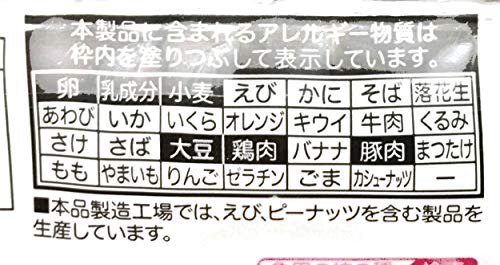 本製品に含まれるアレルギー物質は
枠内を塗りつぶして表示しています。
卵 乳成分 小麦 えび かに そば 落花生
あわび いか いくら オレンジ キウイ 牛肉 くるみ
さけ さば 大豆 鶏肉 バナナ 豚肉 まつたけ
もも やまいも りんご ゼラチン ごま カシューナッツ ー
■本品製造工場では、えび、ピーナッツを含む製品を
生産しています。